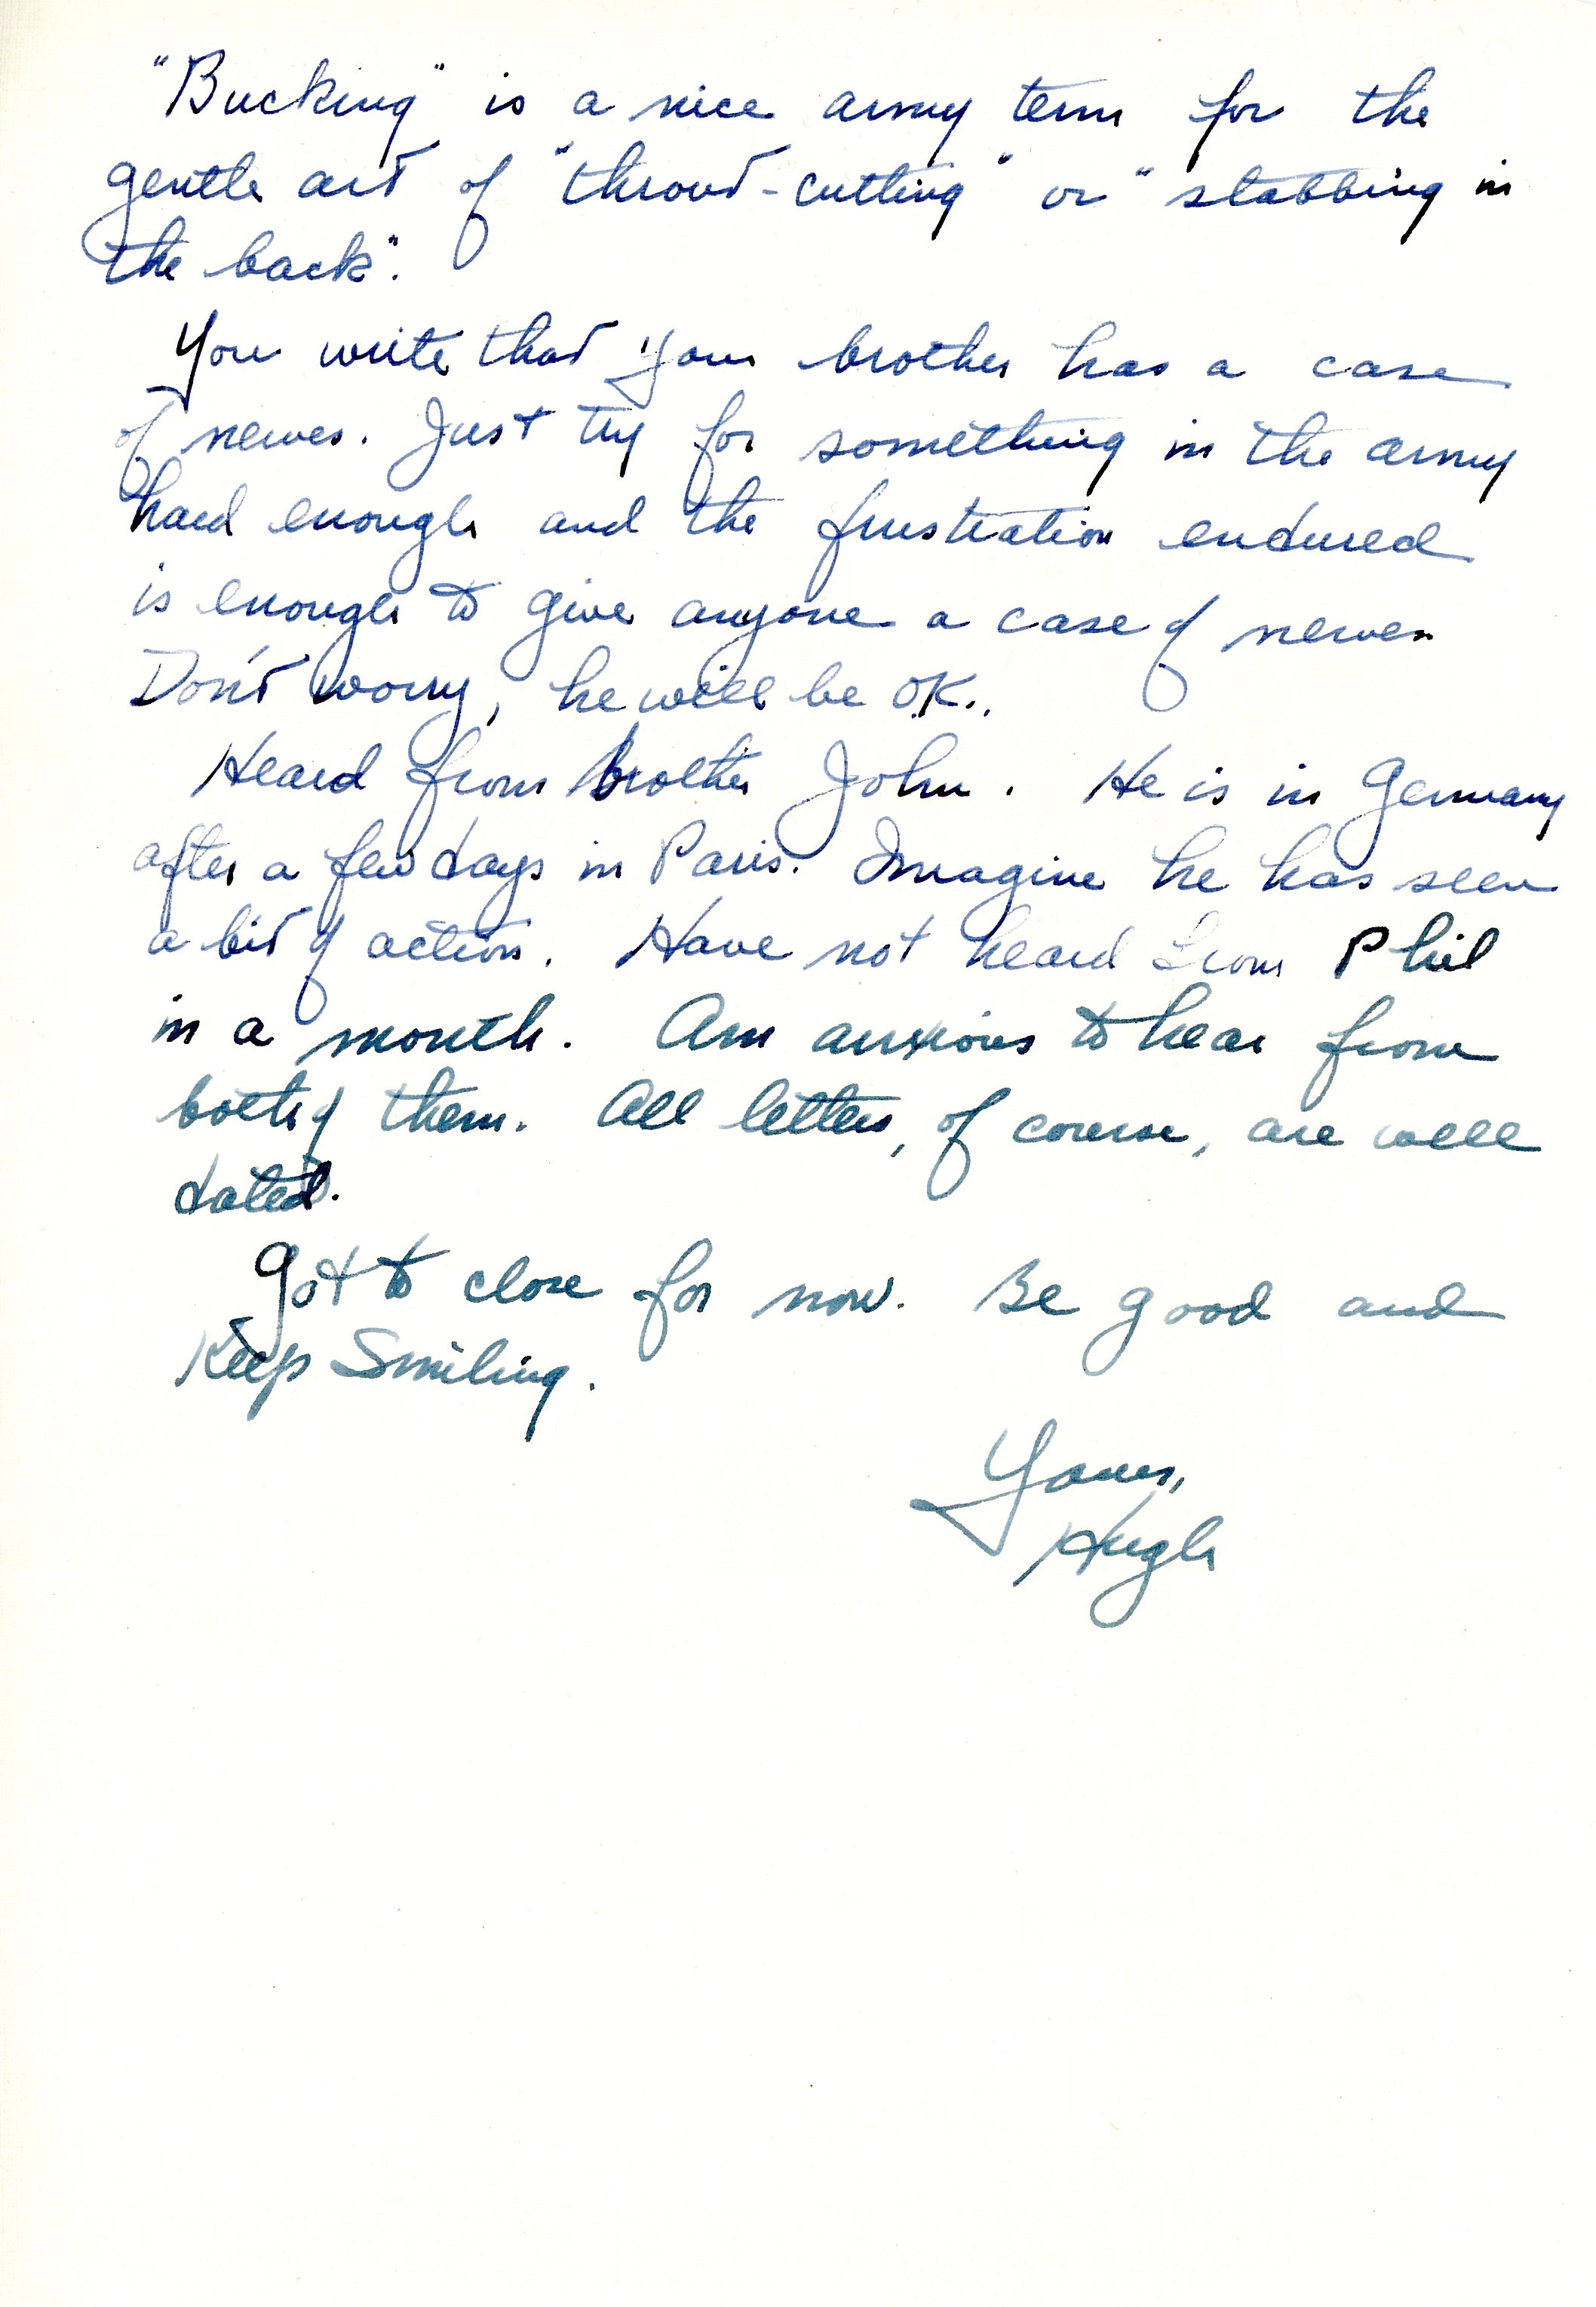 "Bucking" is a nice army term for the
gentle art of "throat-cutting" or "stabbing in
the back".
You write that your brother has a case
of nerves. Just try for something in the army
hard enough and the frustration endured
is enough to give anyone a case of nerves
Don't worry, he will be O.K..
Heard from brother John. He is in Germany
after a few days in Paris. Imagine he has seen
a bit of action. Have not heard from Phil
in a month. Am anxious to hear from
both of them. All letters, of course, are well
dated.
Got to close for now. Be good and
Keep Smiling.
Yours,
Hugh